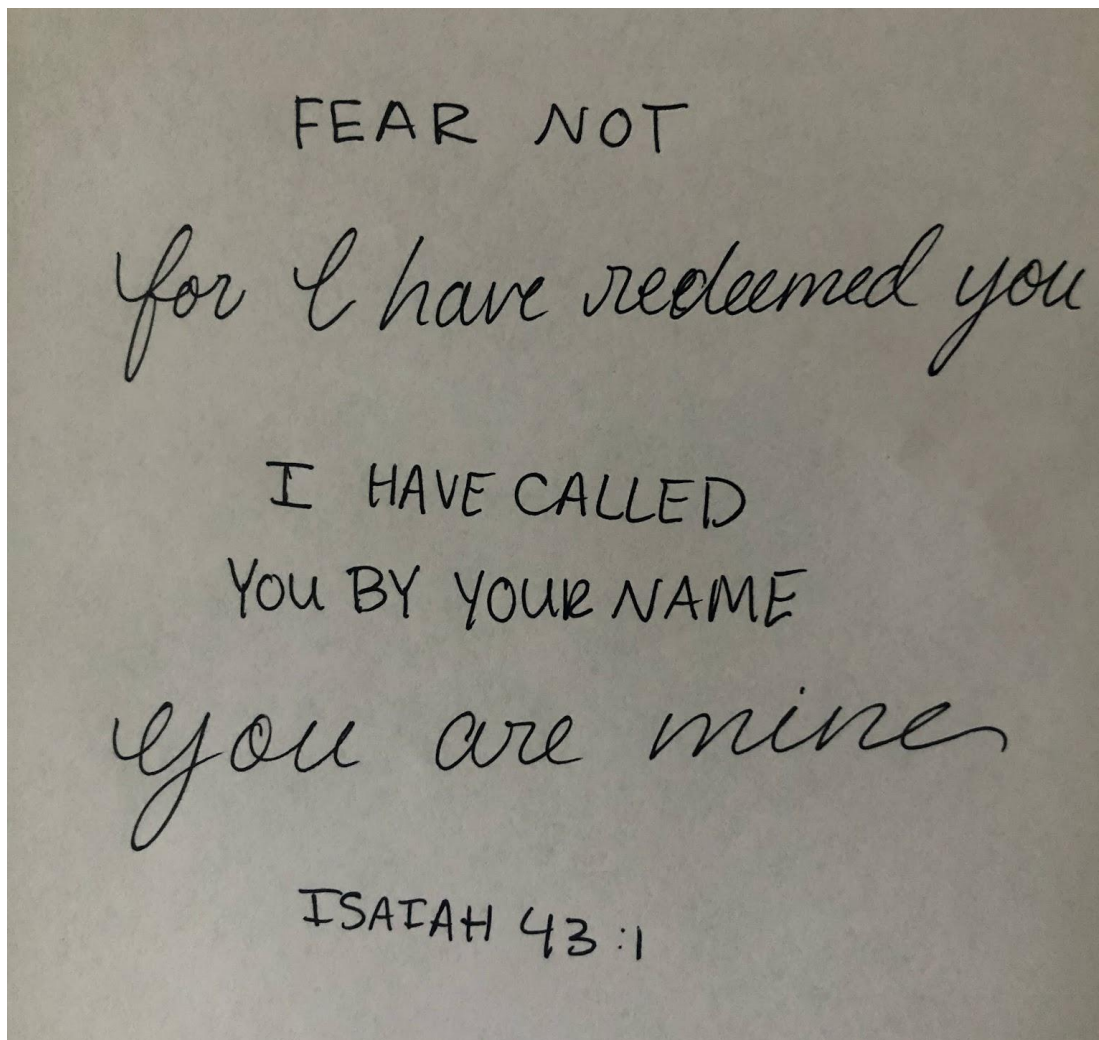 FEAR NOT
for I have redeemed you
I HAVE CALLED
YOU BY YOUR NAME
you are mine
ISAIAH 43:1